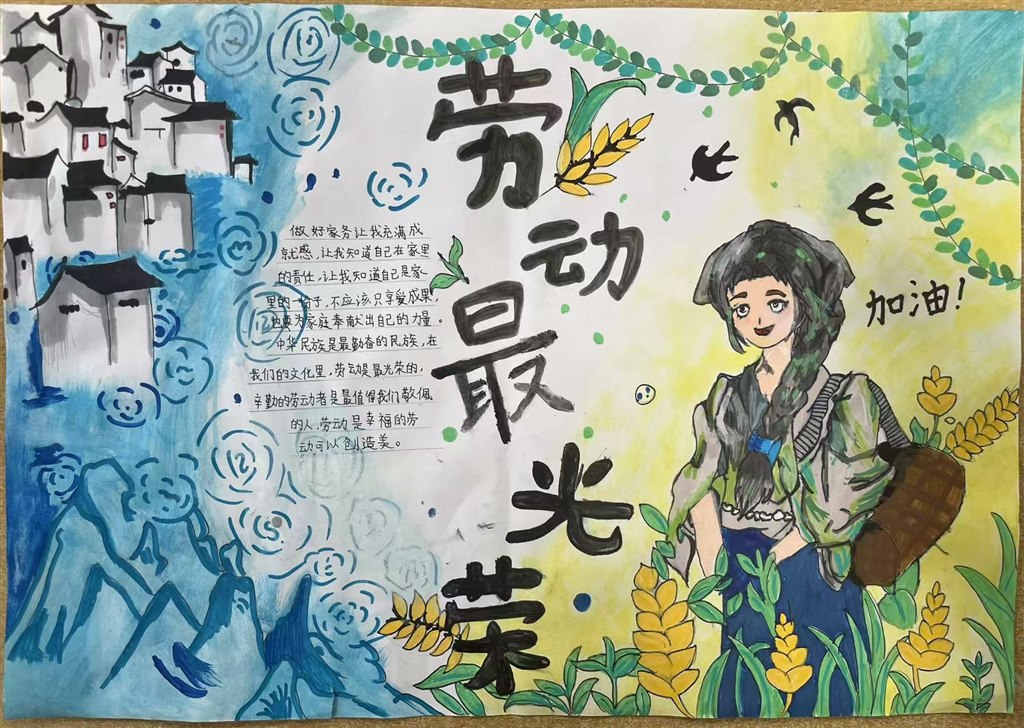 劳动最光荣
做好家务让我充满成
就感，让我知道自己在家里
的责任，让我知道自己是家
里的一份子，不应该只享爱成果，
也要为家庭奉献出自己的力量。
中华民族是最勤奋的民族，在
我们的文化里，劳动是最光荣的，
辛勤的劳动者是最值得我们敬佩
的人，劳动是幸福的劳
动可以创造美。
加油！